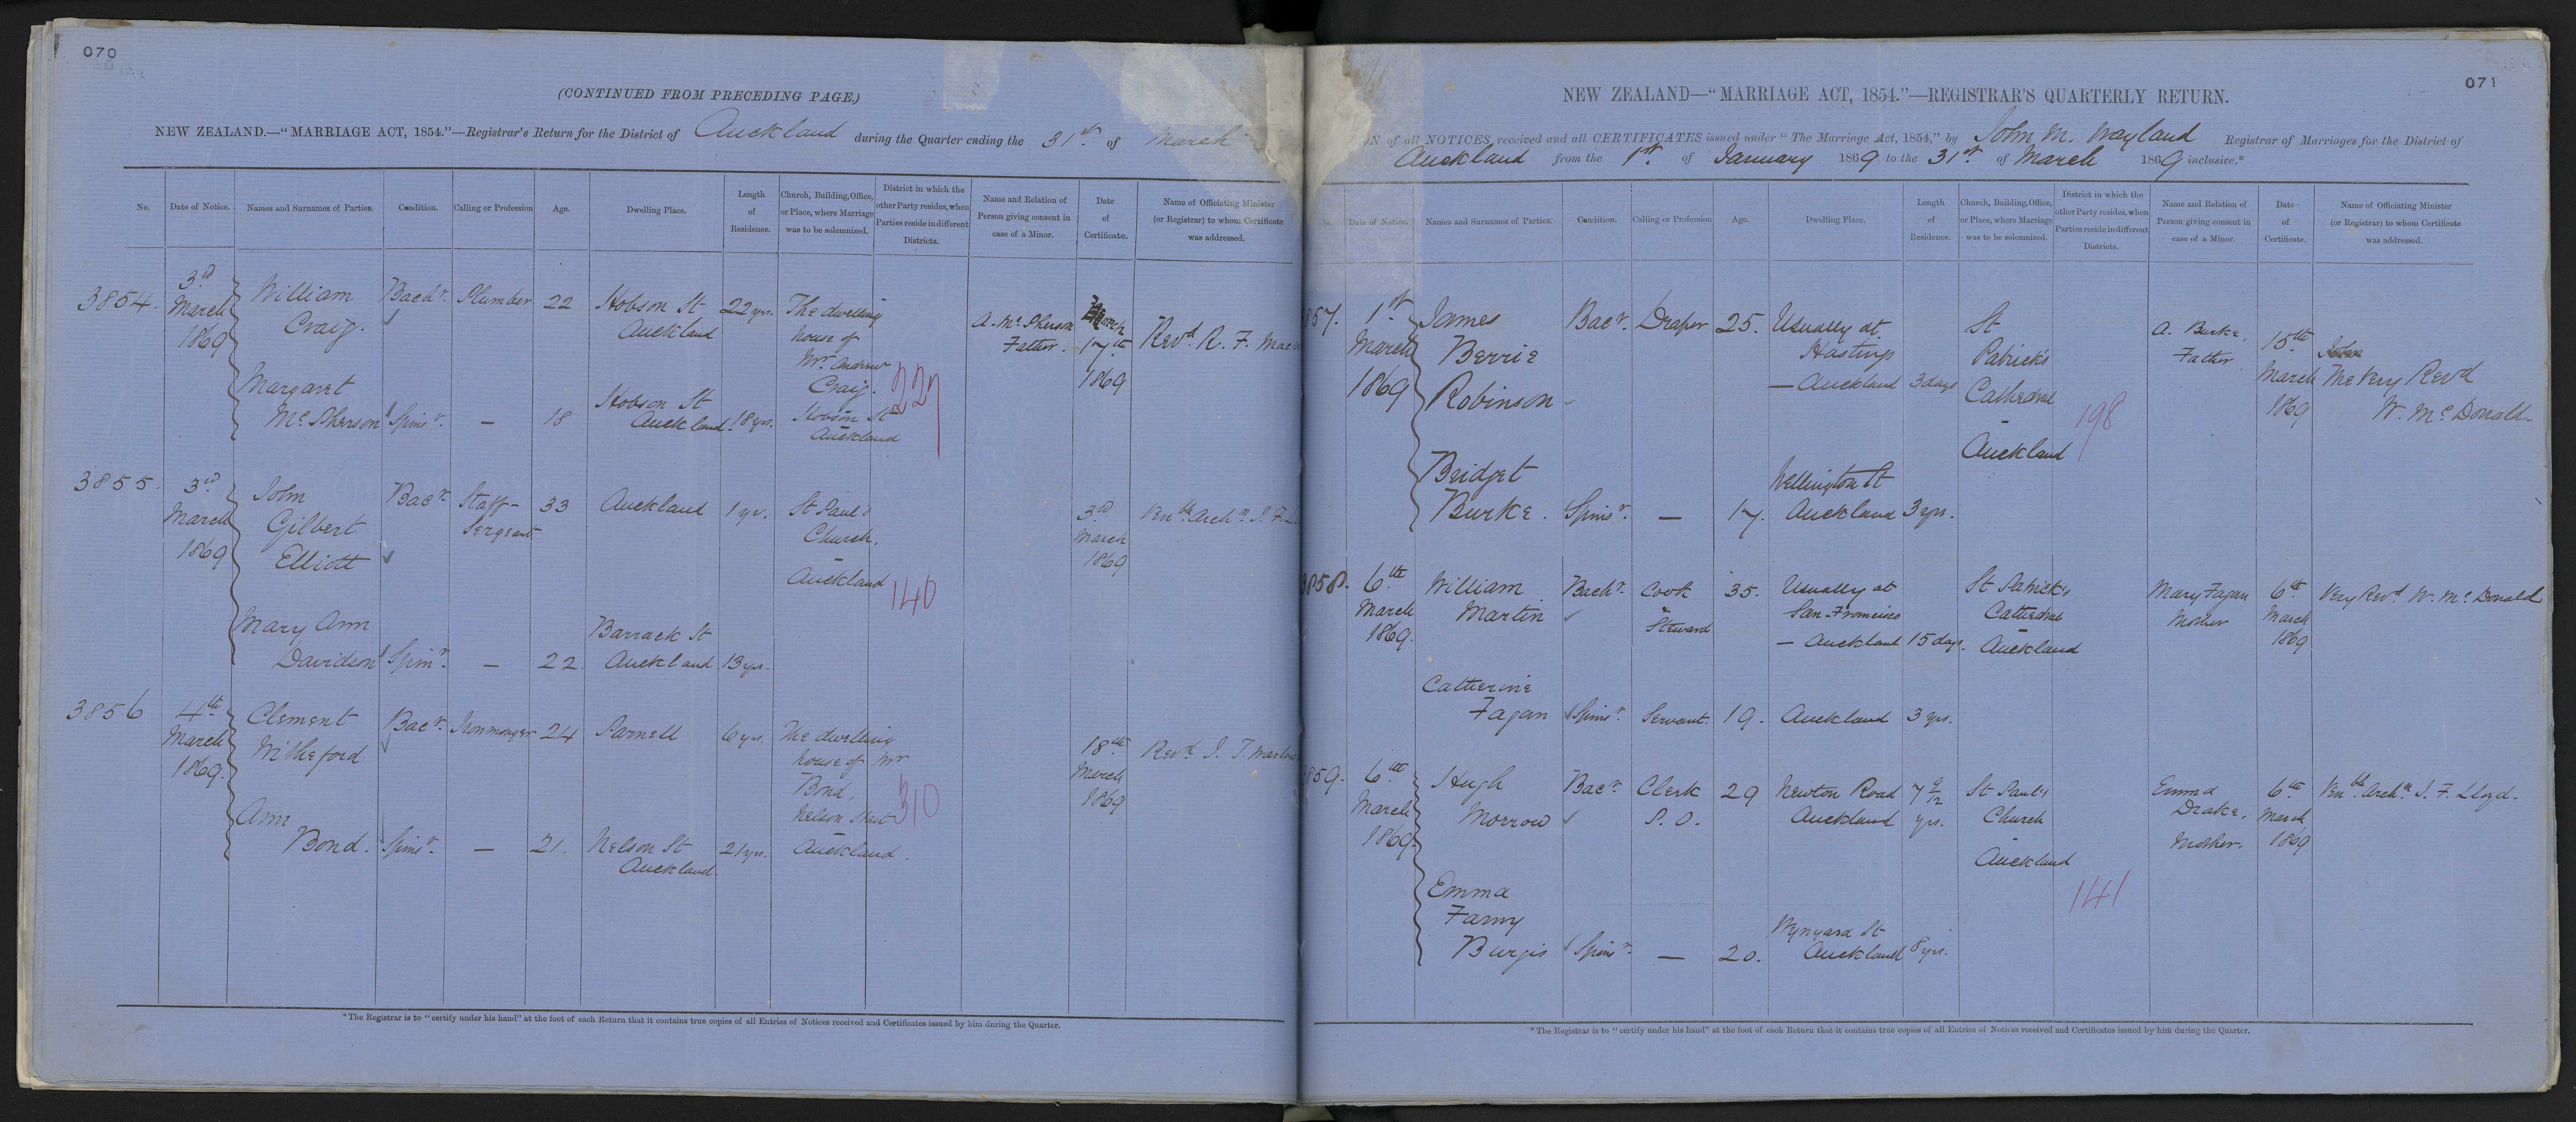 070
(CONTINUED FROM PRECEDING PAGE.)
NEW ZEALAND.—"MARRIAGE ACT, 1854."—Registrar's Return for the District of Auckland during the Quarter ending the 31st of March
No.
Date of Notice.
Names and Surnames of Parties.
Condition.
Calling or Profession
Age.
Dwelling Place.
Length
of
Residence.
Church, Building, Office,
or Place, where Marriage
was to be solemnized.
District in which the
other Party resides, when
Parties reside in different
Districts.
Name and Relation of
Person giving consent in
case of a Minor.
Date
of
Certificate.
Name of Officiating Minister
(or Registrar) to whom Certificate
was addressed.
3854.
3rd
March
1869
William
Craig.
Bachr.
Plumber
22
Hobson St
Auckland
22 yrs.
The dwelling
house of
Mr. Andrew
Craig.
Hobson St
Auckland
227
A. McPherson
Father.
March
17th
1869
Revd. R. F.
Margaret
McPherson
Spinsr.
—
18
Hobson St
Auckland.
18 yrs.
3855.
3rd
March
1869
John
Gilbert
Elliott
Bacr.
Staff-
Sergeant
33
Auckland
1 yr.
St Paul's
Church.
Auckland
140
3rd
March
1869
Venble. Archn. J. F.
Mary Ann
Davidson
Spinr.
—
22.
Barrack St
Auckland
13 yrs.
3856
4th
March
1869.
Clement
Witheford
Bacr.
Ironmonger
24
Parnell
6 yrs.
The dwelling
house of Mr
Bond,
Nelson Street
Auckland.
310
18th
March
1869
Revd. J. T.
Ann
Bond.
Spinsr.
—
21.
Nelson St
Auckland.
21 yrs.
*The Registrar is to "certify under his hand" at the foot of each Return that it contains true copies of all Entries of Notices received and Certificates issued by him during the Quarter.
071
NEW ZEALAND—"MARRIAGE ACT, 1854."—REGISTRAR'S QUARTERLY RETURN.
ON of all NOTICES received and all CERTIFICATES issued under "The Marriage Act, 1854," by John M. Wayland Registrar of Marriages for the District of
Auckland from the 1st. of January 1869 to the 31st. of March 1869 inclusive.*
No.
Date of Notice.
Names and Surnames of Parties.
Condition.
Calling or Profession
Age.
Dwelling Place.
Length
of
Residence.
Church, Building, Office,
or Place, where Marriage
was to be solemnized.
District in which the
other Party resides, when
Parties reside in different
Districts.
Name and Relation of
Person giving consent in
case of a Minor.
Date
of
Certificate.
Name of Officiating Minister
(or Registrar) to whom Certificate
was addressed.
857.
1st
March
1869
James
Berrie
Robinson
Bacr.
Draper
25.
Usually at
Hastings
— Auckland
3 days
St
Patrick's
Cathedral
—
Auckland
198
A. Burke,
Father
15th
March
1869
The Very Revd
W. McDonald
Bridget
Burke.
Spinsr.
—
17.
Wellington St
Auckland
3 yrs.
3858.
6th
March
1869.
William
Martin
Bachr.
Cook
&
Steward
35.
Usually at
San-Francisco
— Auckland
15 days.
St Patrick's
Cathedral
Auckland
Mary Fagan
Mother
6th
March
1869
Very Revd. W. McDonald
Catherine
Fagan
Spinsr.
Servant.
19.
Auckland
3 yrs.
859.
6th
March
1869.
Hugh
Morrow
Bacr.
Clerk
P. O.
29
Newton Road
Auckland
7 9/12
yrs.
St Paul's
Church
—
Auckland
141
Emma
Drake,
Mother.
6th
March
1869
Venble. Archn. J. F. Lloyd.
Emma
Fanny
Burgis
Spinsr.
—
20.
Wynyard St
Auckland
8 yrs.
*The Registrar is to "certify under his hand" at the foot of each Return that it contains true copies of all Entries of Notices received and Certificates issued by him during the Quarter.